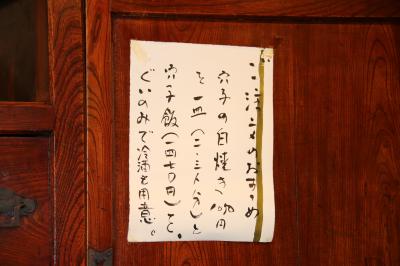 ご注文のおすすめ
穴子の白焼き
を一皿(二・三人分)と
穴子飯(一四七〇円)を、
ぐいのみで冷酒を用意。